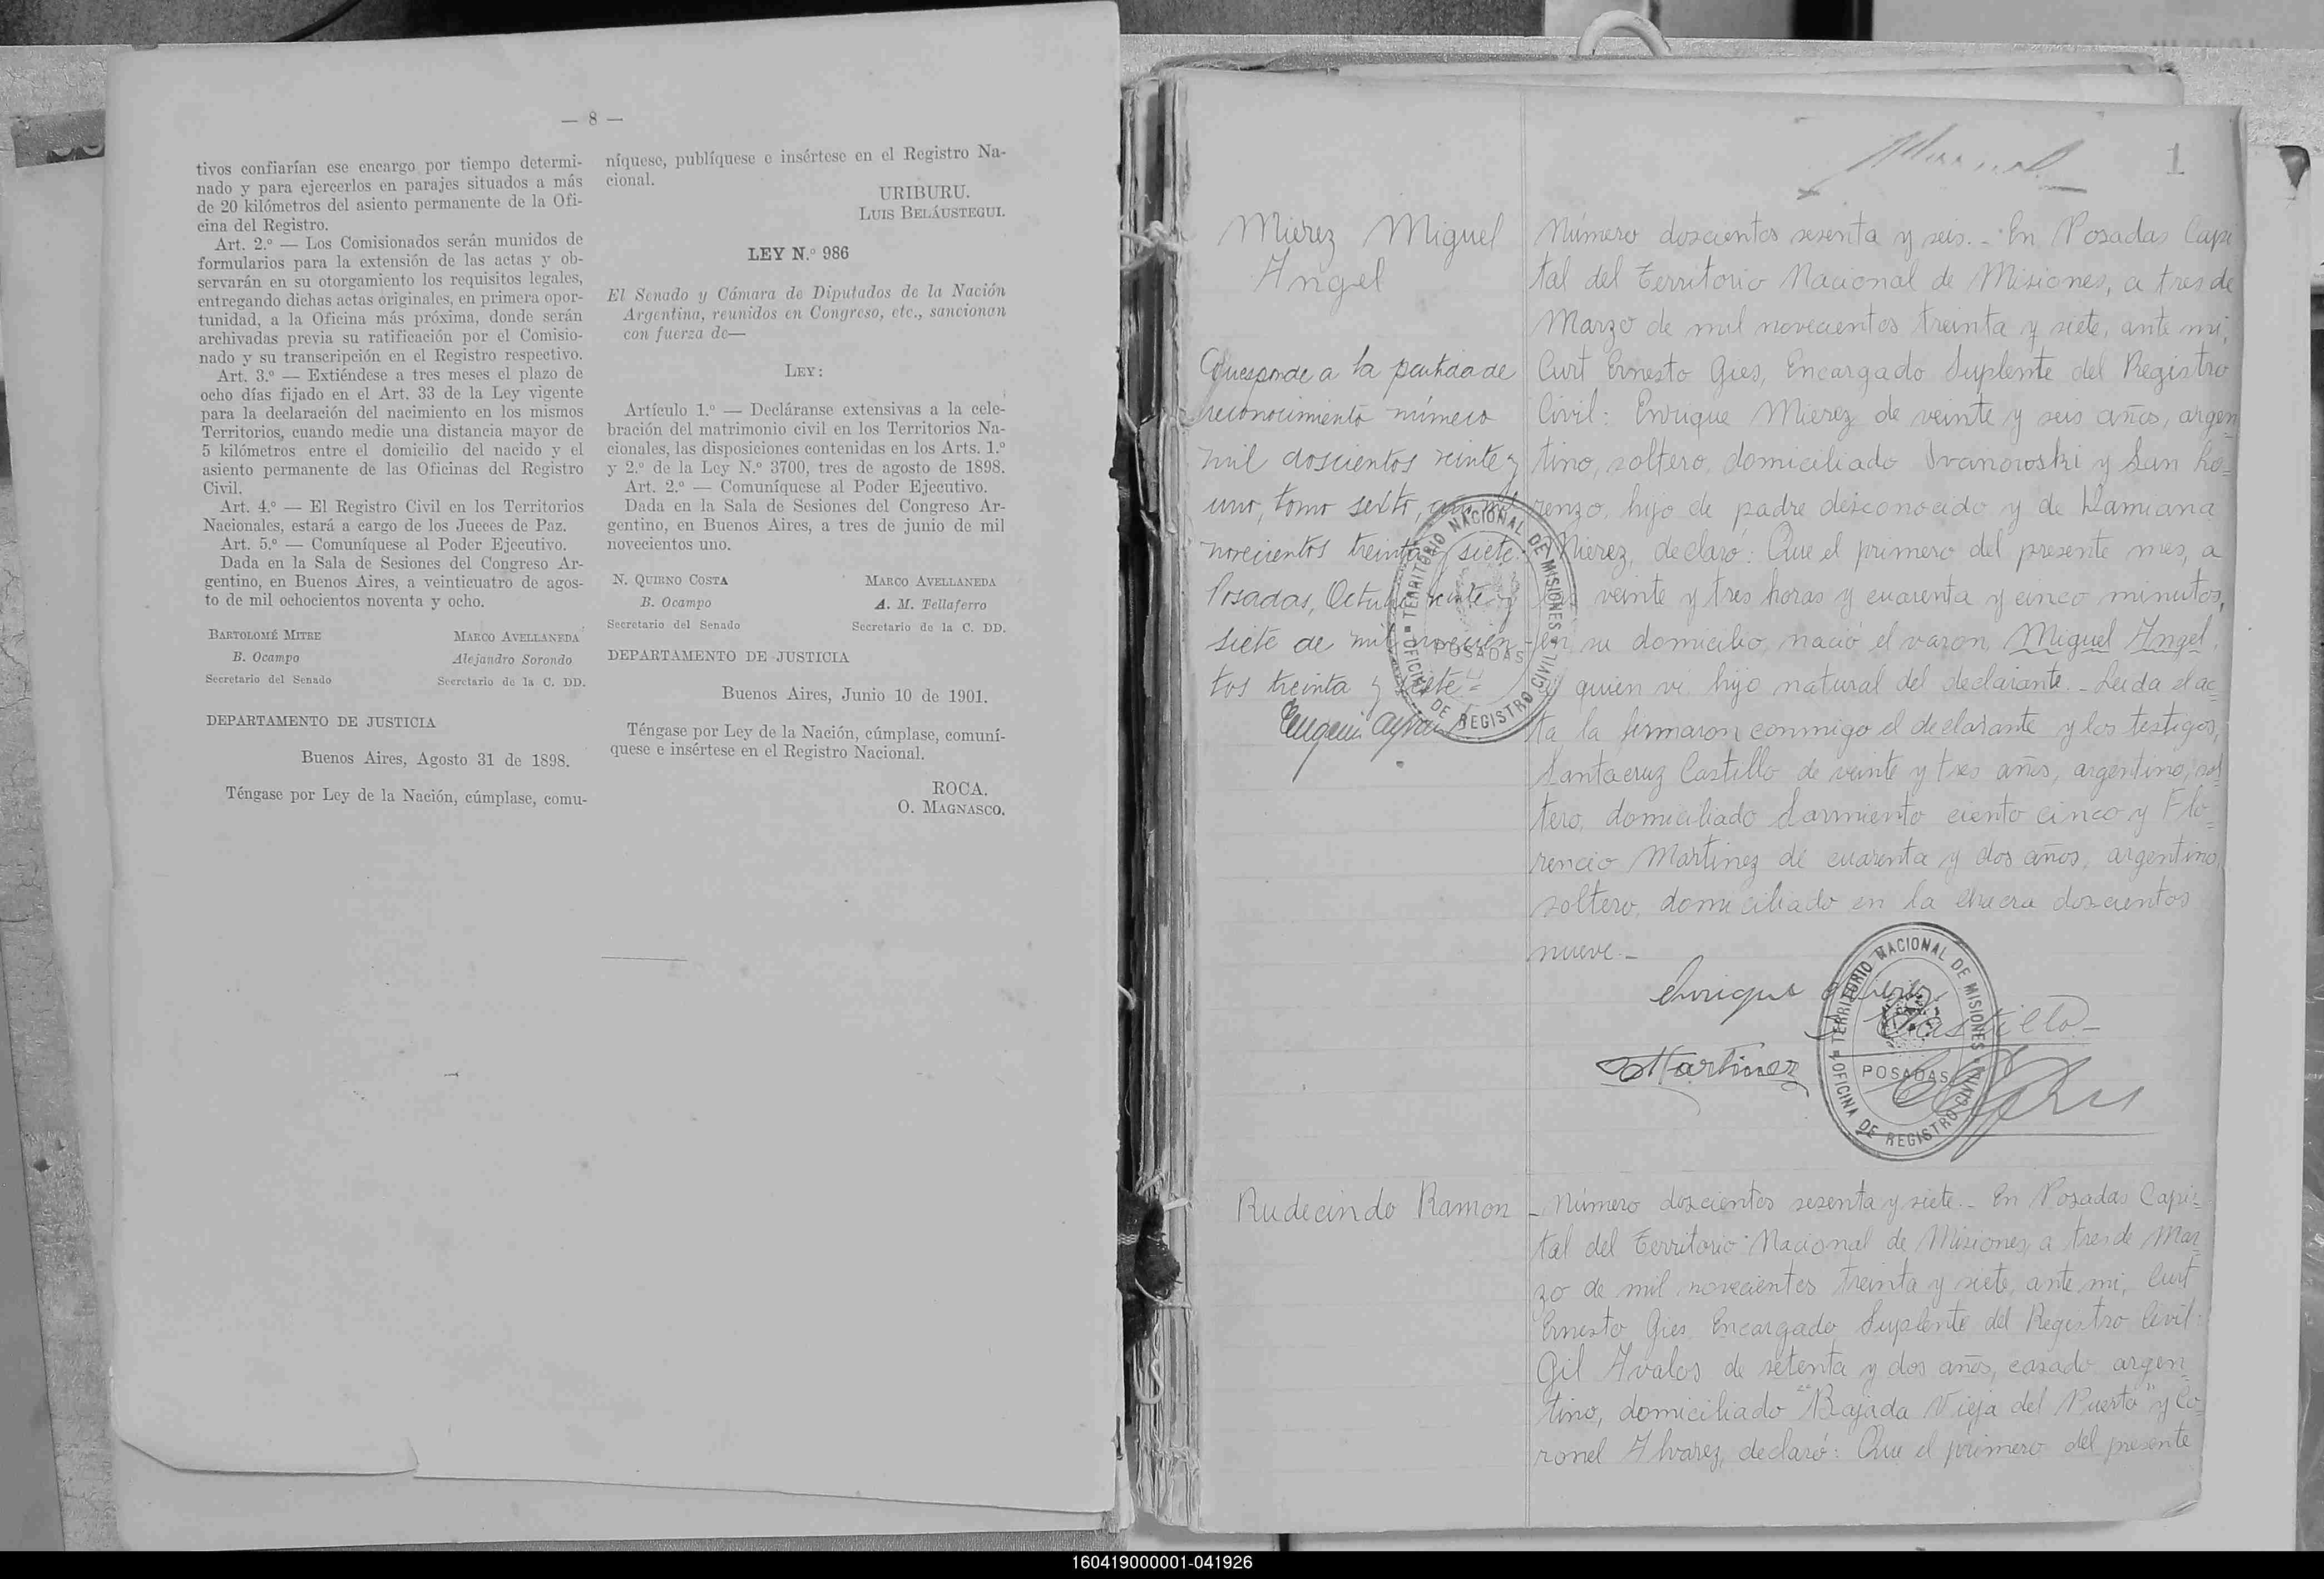 — 8 —
tivos confiarían ese encargo por tiempo determi-
nado y para ejercerlos en parajes situados a más
de 20 kilómetros del asiento permanente de la Ofi-
cina del Registro.
Art. 2.º — Los Comisionados serán munidos de
formularios para la extensión de las actas y ob-
servarán en su otorgamiento los requisitos legales,
entregando dichas actas originales, en primera opor-
tunidad, a la Oficina más próxima, donde serán
archivadas previa su ratificación por el Comisio-
nado y su transcripción en el Registro respectivo.
Art. 3.º — Extiéndese a tres meses el plazo de
ocho días fijado en el Art. 33 de la Ley vigente
para la declaración del nacimiento en los mismos
Territorios, cuando medie una distancia mayor de
5 kilómetros entre el domicilio del nacido y el
asiento permanente de las Oficinas del Registro
Civil.
Art. 4.º — El Registro Civil en los Territorios
Nacionales, estará a cargo de los Jueces de Paz.
Art. 5.º — Comuníquese al Poder Ejecutivo.
Dada en la Sala de Sesiones del Congreso Ar-
gentino, en Buenos Aires, a veinticuatro de agos-
to de mil ochocientos noventa y ocho.
BARTOLOMÉ MITRE MARCO AVELLANEDA
B. Ocampo Alejandro Sorondo
Secretario del Senado Secretario de la C. DD.
DEPARTAMENTO DE JUSTICIA
Buenos Aires, Agosto 31 de 1898.
Téngase por Ley de la Nación, cúmplase, comu-
níquese, publíquese e insértese en el Registro Na-
cional.
URIBURU.
LUIS BELÁUSTEGUI.
LEY N.º 986
El Senado y Cámara de Diputados de la Nación
Argentina, reunidos en Congreso, etc., sancionan
con fuerza de—
LEY:
Artículo 1.º — Decláranse extensivas a la cele-
bración del matrimonio civil en los Territorios Na-
cionales, las disposiciones contenidas en los Arts. 1.º
y 2.º de la Ley N.º 3700, tres de agosto de 1898.
Art. 2.º — Comuníquese al Poder Ejecutivo.
Dada en la Sala de Sesiones del Congreso Ar-
gentino, en Buenos Aires, a tres de junio de mil
novecientos uno.
N. QUIRNO COSTA MARCO AVELLANEDA
B. Ocampo A. M. Tellaferro
Secretario del Senado Secretario de la C. DD.
DEPARTAMENTO DE JUSTICIA
Buenos Aires, Junio 10 de 1901.
Téngase por Ley de la Nación, cúmplase, comuní-
quese e insértese en el Registro Nacional.
ROCA.
O. MAGNASCO.
1
Mierez Miguel
Angel
Corresponde a la partida de
reconocimiento número
mil doscientos veinte y
uno, tomo sexto, año mil
novecientos treinta y siete.
Posadas, Octubre veinte y
siete de mil novecien-
tos treinta y siete=
Número doscientos sesenta y seis.- En Posadas Capi
tal del Territorio Nacional de Misiones, a tres de
Marzo de mil novecientos treinta y siete, ante mi,
Curt Ernesto Gies, Encargado Suplente del Registro
Civil: Enrique Mierez de veinte y seis años, argen
tino, soltero, domiciliado Ivanowski y San Lo=
renzo, hijo de padre desconocido y de Damiana
Mierez, declaró: Que el primero del presente mes, a
las veinte y tres horas y cuarenta y cinco minutos,
en su domicilio, nació el varon, Miguel Angel,
a quien vi, hijo natural del declarante.- Leida el ac=
ta la firmaron conmigo el declarante y los testigos,
Santacruz Castillo de veinte y tres años, argentino, sol
tero, domiciliado Sarmiento ciento cinco y Flo=
rencio Martinez de cuarenta y dos años, argentino,
soltero, domiciliado en la chacra doscientos
nueve.-
Enrique Mierez
Castillo
Martinez
TERRITORIO NACIONAL DE MISIONES
POSADAS
OFICINA DE REGISTRO CIVIL
TERRITORIO NACIONAL DE MISIONES
POSADAS
OFICINA DE REGISTRO CIVIL
Rudecindo Ramon
Número doscientos sesenta y siete.- En Posadas Capi=
tal del Territorio Nacional de Misiones, a tres de Mar
zo de mil novecientos treinta y siete, ante mi, Curt
Ernesto Gies, Encargado Suplente del Registro Civil:
Gil Avalos de setenta y dos años, casado, argen
tino, domiciliado "Bajada Vieja del Puerto" y Co
ronel Alvarez, declaró: Que el primero del presente
160419000001-041926